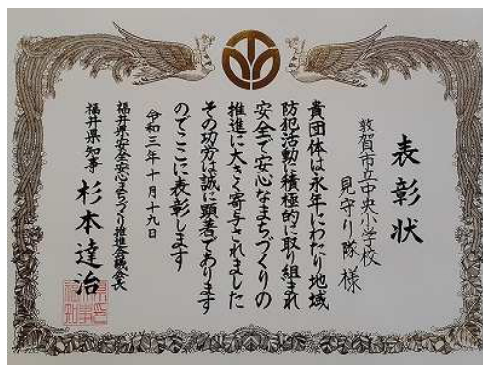 表彰状
敦賀市立中央小学校
見守り隊 様
貴団体は永年にわたり地域
防犯活動に積極的に取り組まれ
安全で安心なまちづくりの
推進に大きく寄与されました
その功労は誠に顕著であります
のでここに表彰します
令和三年十月十九日
福井県安全安心まちづくり推進会議会長
福井県知事 杉本達治